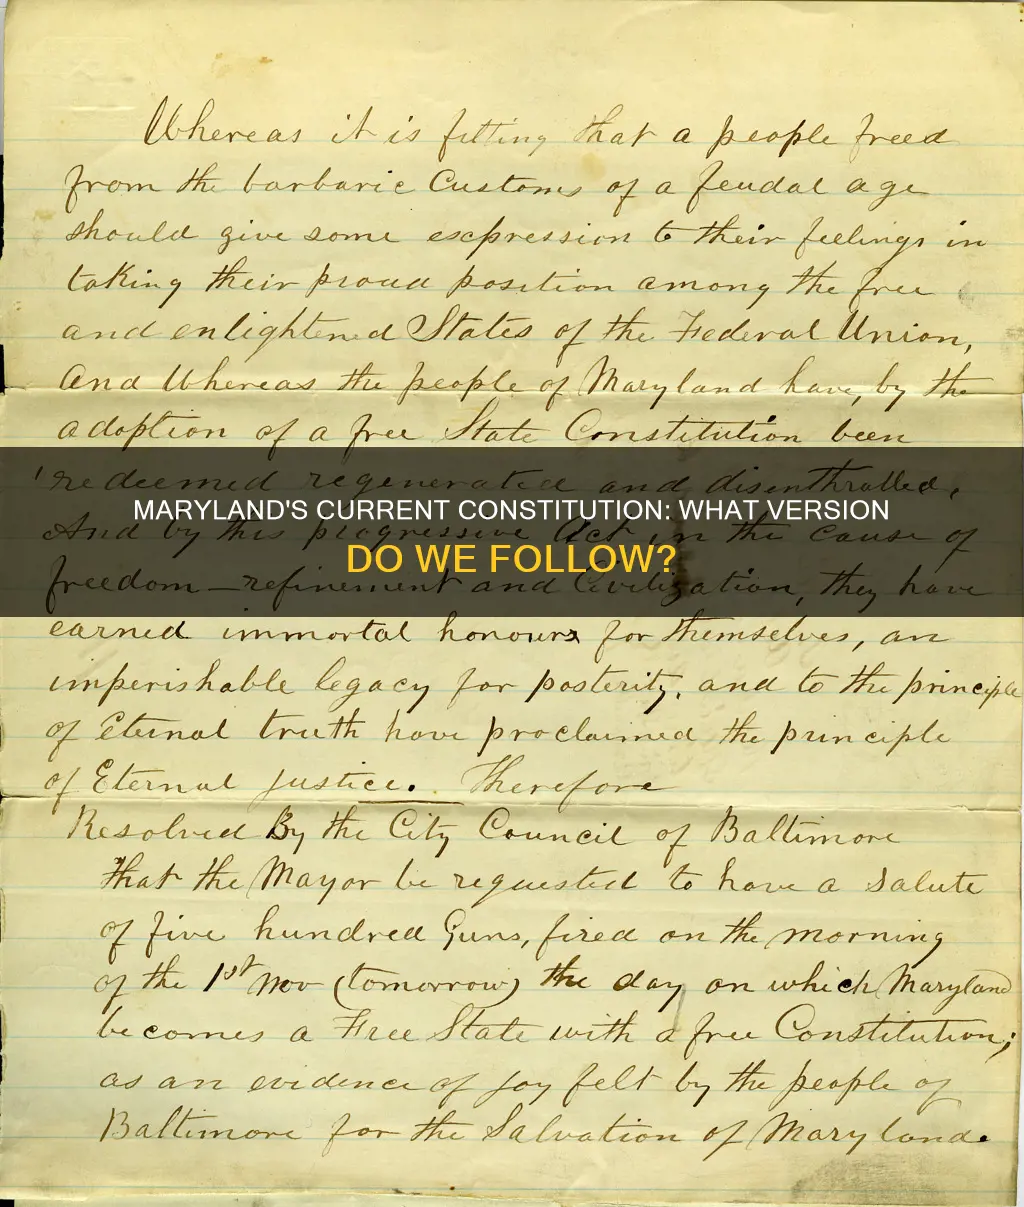 Whereas it is fitting that a people freed
from the barbaric Customs of a feudal age
should give some expression to their feelings in
taking their proud position among the free
and enlightened States of the Federal Union,
And Whereas the people of Maryland have, by the
adoption of a free State Constitution been
redeemed regenerated and disenthralled,
MARYLAND'S CURRENT CONSTITUTION: WHAT VERSION
And by this progressive Act in the cause of
DO WE FOLLOW?
freedom—refinement and Civilization, they have
earned immortal honours for themselves, an
imperishable legacy for posterity, and to the principle
of Eternal truth have proclaimed the principle
of Eternal justice. Therefore
Resolved By the City Council of Baltimore
that the Mayor be requested to have a salute
of five hundred Guns, fired on the morning
of the 1st Nov (tomorrow) the day on which Maryland
becomes a Free State with a free Constitution;
as an evidence of joy felt by the people of
Baltimore for the Salvation of Maryland.